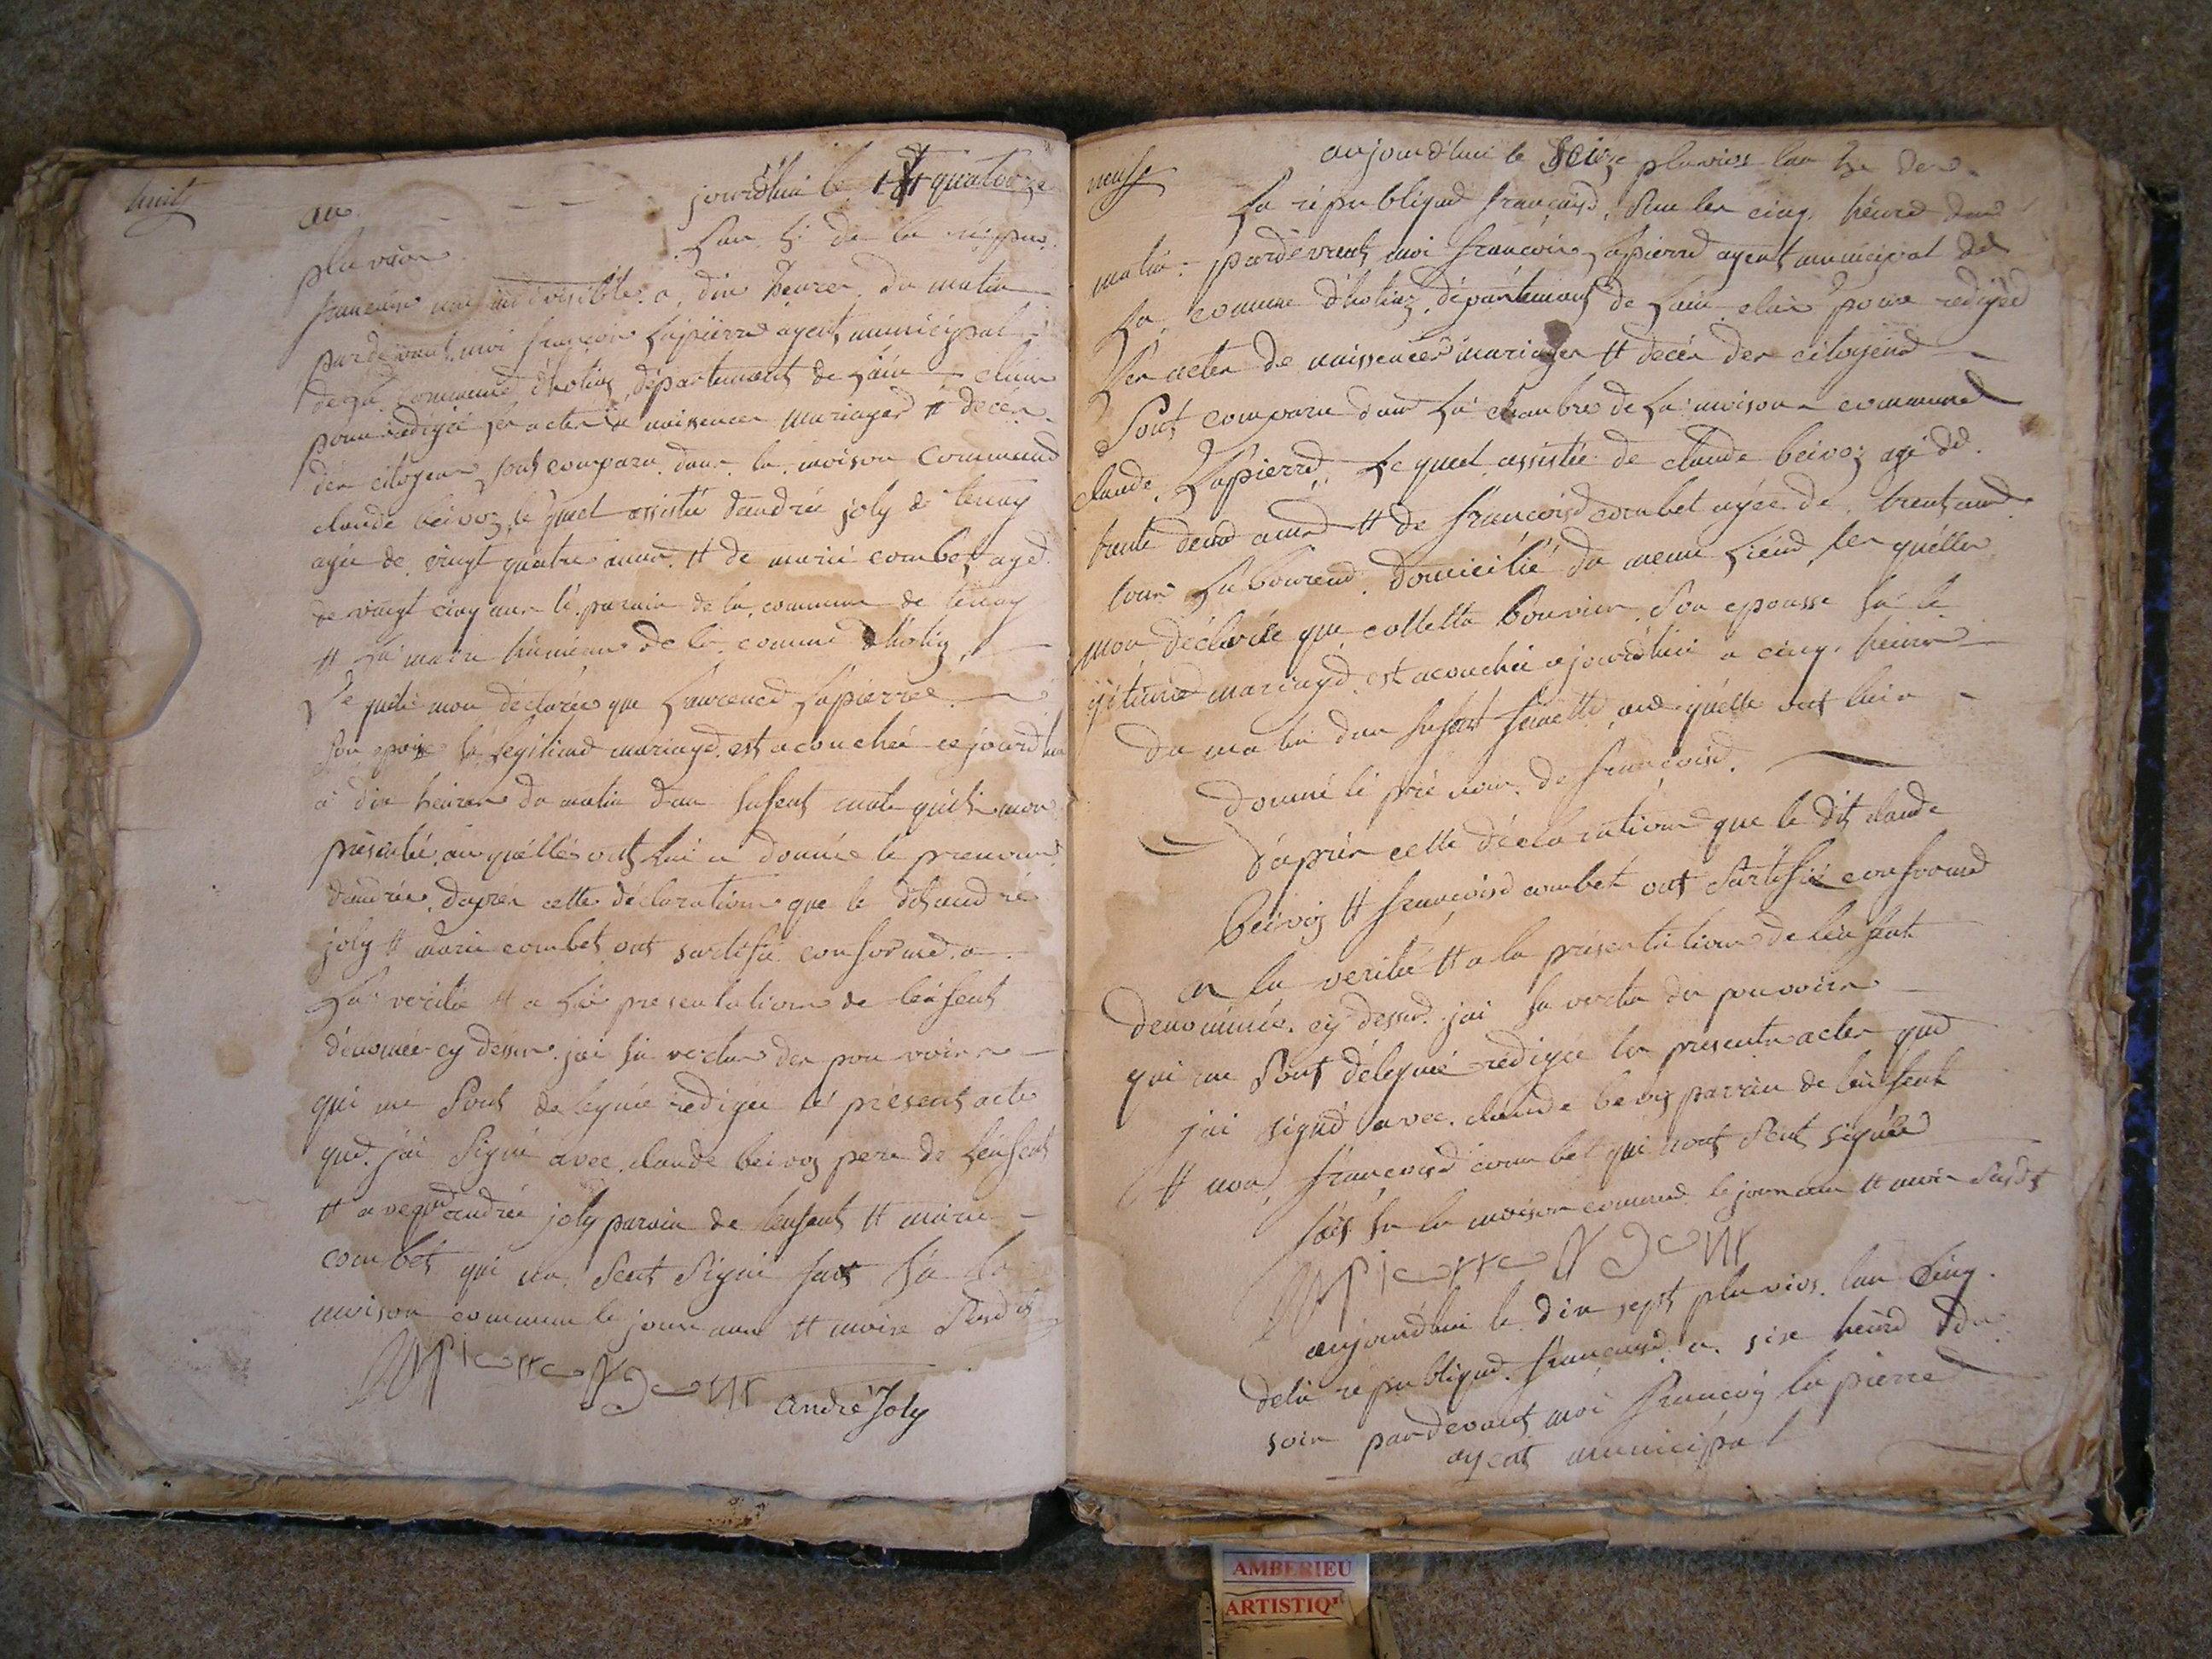 huit
au jourdhui le quatorze
pluvios lan 5e de la répu.
francaise une indivisible a dix heures du matin
pardevant moi francois Lapierre agent municipal
de La commune dhotias département de Lain elue
pour rédigié les actes de naissences mariages et décés
des citoyens sont comparu dans la maison commune
claude beivoz le quel assistée dandrée joly de tenay
agée de vingt quatre anné et de marie combet aged
de vingt cinq ans le parain de la commune de tenay
et La maraine de la comune dhotias
Le quel mon déclarée que Laurence Lapierre
son epouse la Legitime mariage est acouchée ce jourdhui
a dix heures du matin dan Enfent male quil mon
présentée auquélles ont Lui a donnée le prenom
dandrée daprés cette déclaration que le dit andré
joly et marie combet ont sartifié conforme a
La verite et a La presentation de lenfent
dénomée cy desus jai En vertu des pouvoirs
qui me sont deleguée redigée lé présent acte
que jai signé avec claude beivoz pere de Lenfent
et avec andrée joly parain de lenfent et marie
combet qui na seut signé fait En La
maison commune le jour anné et mois susdit
Lapierre agent
andré Joly
neuf
aujourdhui le seize pluvios lan 5e de
La républiqued francaised sur les cinq heures du
matin pardevent moi francois Lapierre agent municipal de
La comune dhotiaz département de Lain elue pour redigée
Les actes de naissences mariages et decés des citoyens
Sont comparu dans La chambre de La maison commune
claude Lapierre Le quel assistée de claude beivoz agé de
trente deux anné et de francoise combet agée de trent anné
tous Laboureur domicilié du meme Lieux les quélles
mon déclarée que collette bouvier son epousse En lé
gitimé mariage est acouchée ajourdhui a cinq heures
du matin dan Enfent femelle au quélle ont lui a
donné lé pré nom de francoise
Daprés cette déclaration que le dit claude
beivoz et francoise combet ont sartifié conforme
a la verité et a la présentation de lenfent
denommée cy desus jai En vertu du pouvoirs
qui me sont délegué redigée les presents actes que
jai signé avec claude bevoz parrain de lenfent
et non francoise combet qui nont seut signée
fait En la maison commune le jour an et mois susdit
Lapierre agent
aujourdhui le dix sept pluvios lan cinq
de la républiqued francaise a sixe heure du
soir pardevant moi francois lapierre
agent municipal
AMBERIEU
ARTISTIQ